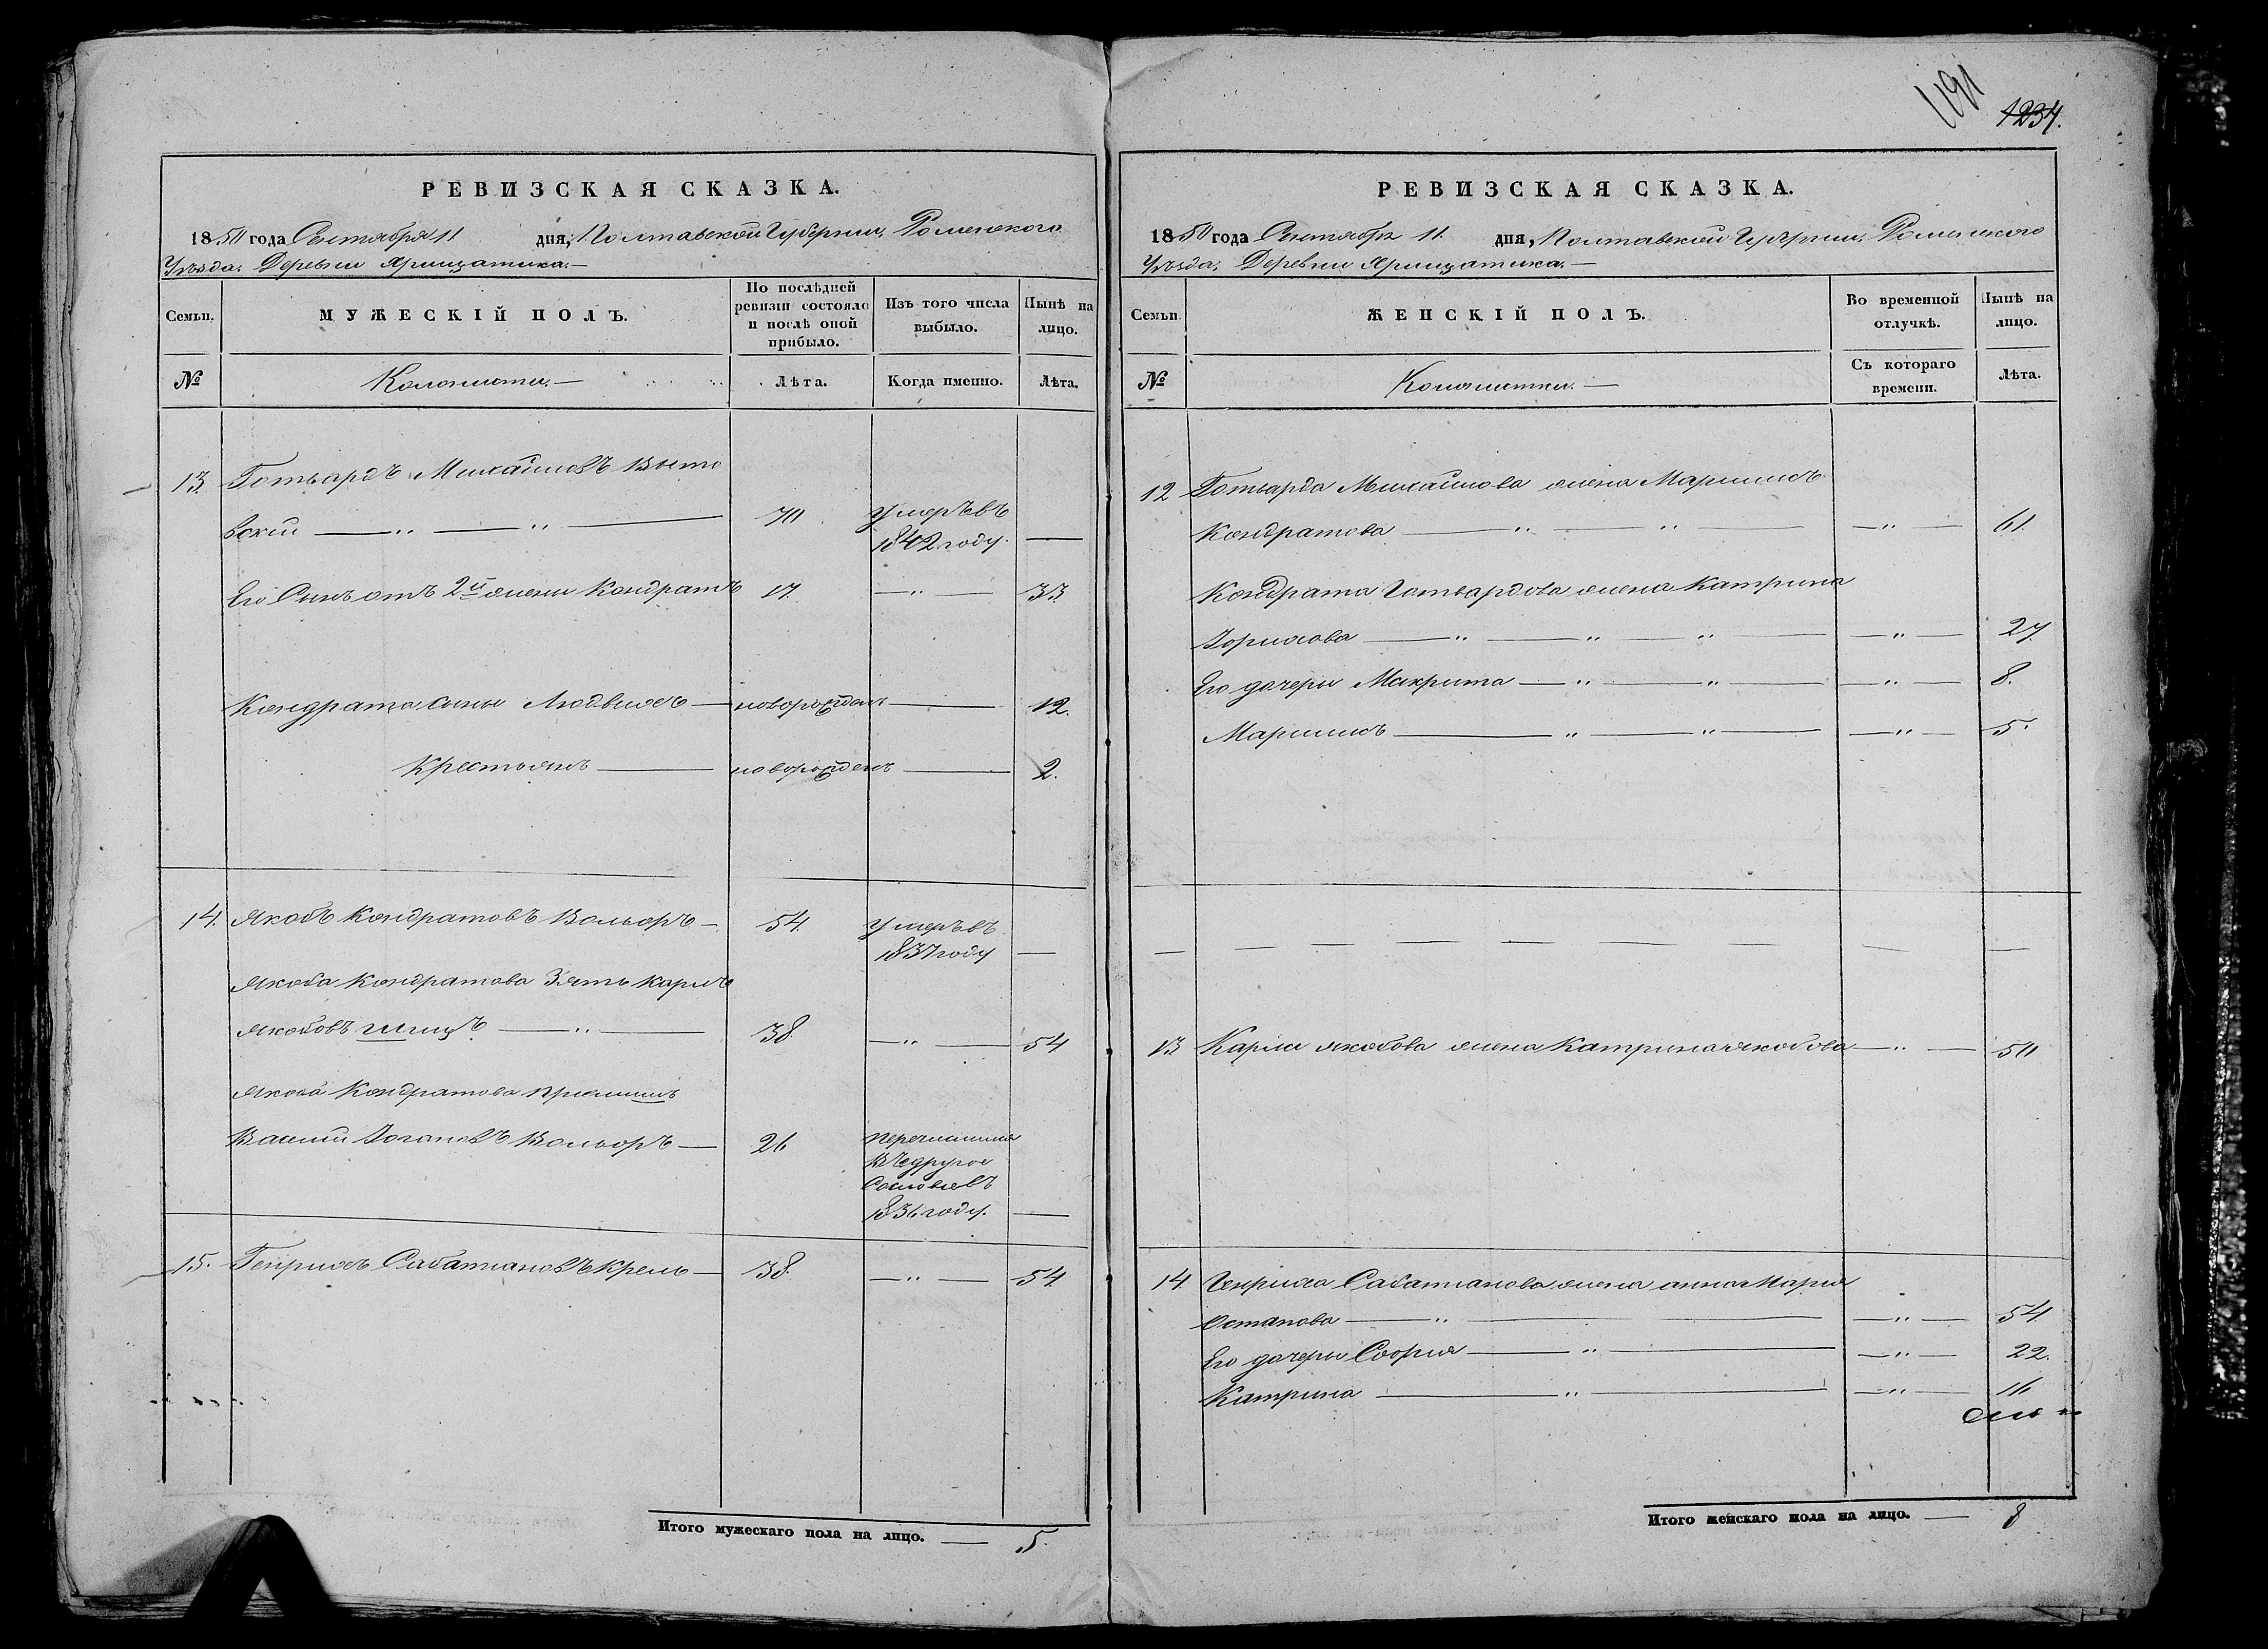 РЕВИЗСКАЯ СКАЗКА.
1850 года Сентября 11 дня, Полтавской Губернии, Роменского
Уѣзда, Деревни
Семьи.
МУЖЕСКІЙ ПОЛЪ.
По послѣдней ревизіи состояло и послѣ оной прибыло.
Изъ того числа выбыло.
Нынѣ на лицо.
№
Колонисты.
Лѣта.
Когда именно.
Лѣта.
13. Готьардъ Михайловъ
вскій 70. умеръ въ
1842 году.
Его Сынъ отъ 2й жены Кондратъ 17. 33.
Кондрата сыны Людвихъ новорожденъ 12.
Крестьянъ новорожденъ 2.
14. Якобъ Кондратовъ Вольфръ 54. умеръ въ
1837 году
Якоба Кондратова Зять Карлъ
Якобовъ 38. 54
Якова Кондратова
Іогановъ Вольфръ 26 перечислился
въ другое
Сословіе въ
1836 году.
15. Генрихъ Сабатиановъ Крель 38. 54
Итого мужескаго пола на лицо. 5.
1191
1234.
РЕВИЗСКАЯ СКАЗКА.
1850 года Сентября 11 дня, Полтавской Губернии, Роменского
Уѣзда, Деревни
Семьи
ЖЕНСКІЙ ПОЛЪ.
Во временной отлучкѣ.
Нынѣ на лицо.
№
Колонистки.
Съ котораго времени.
Лѣта.
12 Готьарда Михайлова жена
Кондратова 61.
Кондрата Готьардова жена Катрина
27.
Его дочери Макрита 8.
5.
13 Карла Якобова жена Катрина Якобова 50
14 Генриха Сабатианова жена Анна Мария
Остапова 54.
Его дочери София 22.
Катрина 16
Итого женскаго пола на лицо. 8